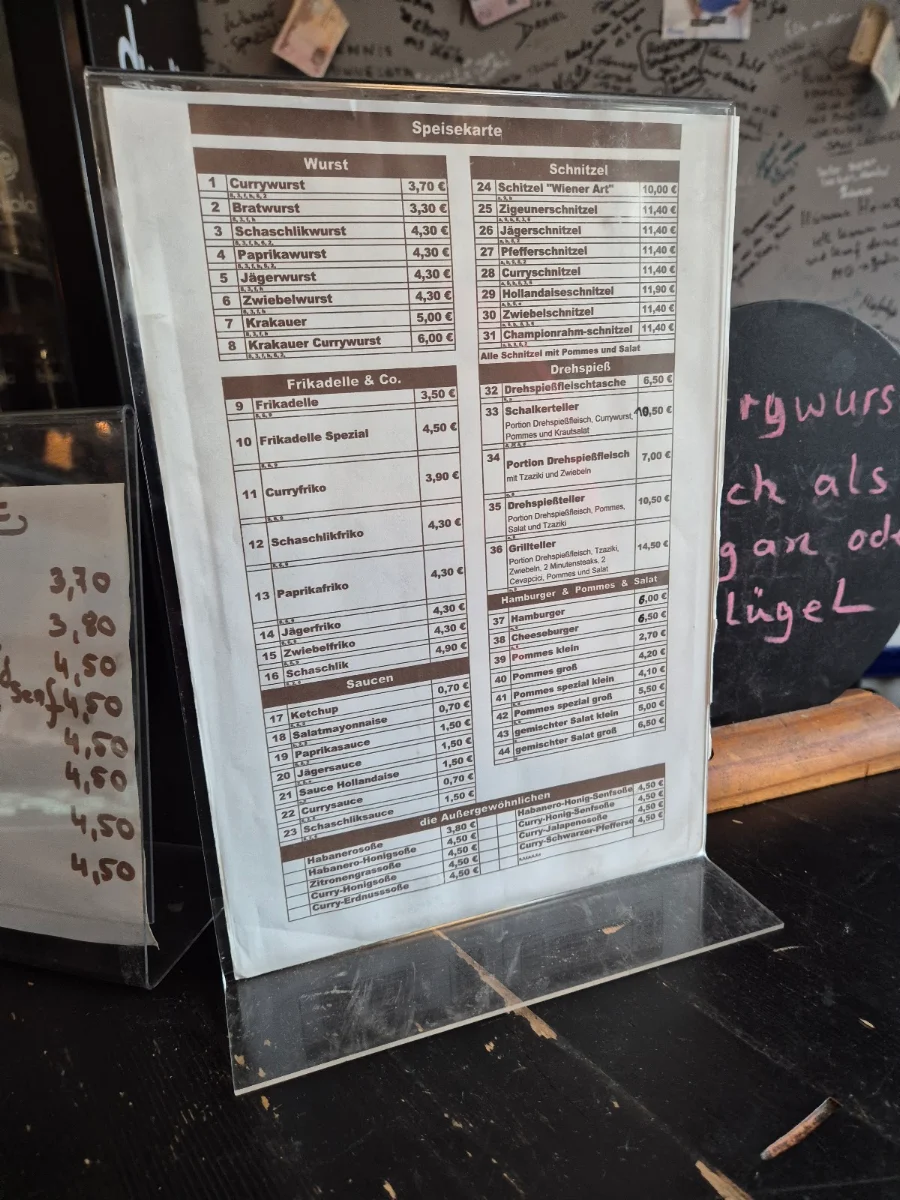 Speisekarte
Wurst
1 Currywurst 3,70 €
2 Bratwurst 3,30 €
3 Schaschlikwurst 4,30 €
4 Paprikawurst 4,30 €
5 Jägerwurst 4,30 €
6 Zwiebelwurst 4,30 €
7 Krakauer 5,00 €
8 Krakauer Currywurst 6,00 €
Frikadelle & Co.
9 Frikadelle 3,50 €
10 Frikadelle Spezial 4,50 €
11 Curryfriko 3,90 €
12 Schaschlikfriko 4,30 €
13 Paprikafriko 4,30 €
14 Jägerfriko 4,30 €
15 Zwiebelfriko 4,30 €
16 Schaschlik 4,90 €
Saucen
17 Ketchup 0,70 €
18 Salatmayonnaise 0,70 €
19 Paprikasauce 1,50 €
20 Jägersauce 1,50 €
21 Sauce Hollandaise 1,50 €
22 Currysauce 0,70 €
23 Schaschliksauce 1,50 €
Schnitzel
24 Schitzel "Wiener Art" 10,00 €
25 Zigeunerschnitzel 11,40 €
26 Jägerschnitzel 11,40 €
27 Pfefferschnitzel 11,40 €
28 Curryschnitzel 11,40 €
29 Hollandaiseschnitzel 11,90 €
30 Zwiebelschnitzel 11,40 €
31 Championrahm-schnitzel 11,40 €
Alle Schnitzel mit Pommes und Salat
Drehspieß
32 Drehspießfleischtasche 6,50 €
33 Schalkerteller 10,50 €
Portion Drehspießfleisch, Currywurst,
Pommes und Krautsalat
34 Portion Drehspießfleisch 7,00 €
mit Tzaziki und Zwiebeln
35 Drehspießteller 10,50 €
Portion Drehspießfleisch, Pommes,
Salat und Tzaziki
36 Grillteller 14,50 €
Portion Drehspießfleisch, Tzaziki,
Zwiebeln, 2 Minutensteaks, 2
Cevapcici, Pommes und Salat
Hamburger & Pommes & Salat
37 Hamburger 6,00 €
38 Cheeseburger 6,50 €
39 Pommes klein 2,70 €
40 Pommes groß 4,20 €
41 Pommes spezial klein 4,10 €
42 Pommes spezial groß 5,50 €
43 gemischter Salat klein 5,00 €
44 gemischter Salat groß 6,50 €
die Außergewöhnlichen
Habanerosoße 3,80 €
Habanero-Honigsoße 4,50 €
Zitronengrassoße 4,50 €
Curry-Honigsoße 4,50 €
Curry-Erdnusssoße 4,50 €
Habanero-Honig-Senfsoße 4,50 €
Curry-Honig-Senfsoße 4,50 €
Curry-Jalapenosoße 4,50 €
Curry-Schwarzer-Pfefferso 4,50 €
3,70
3,80
4,50
Senf 4,50
4,50
4,50
4,50
4,50
rywurs
ch als
gan ode
lügel